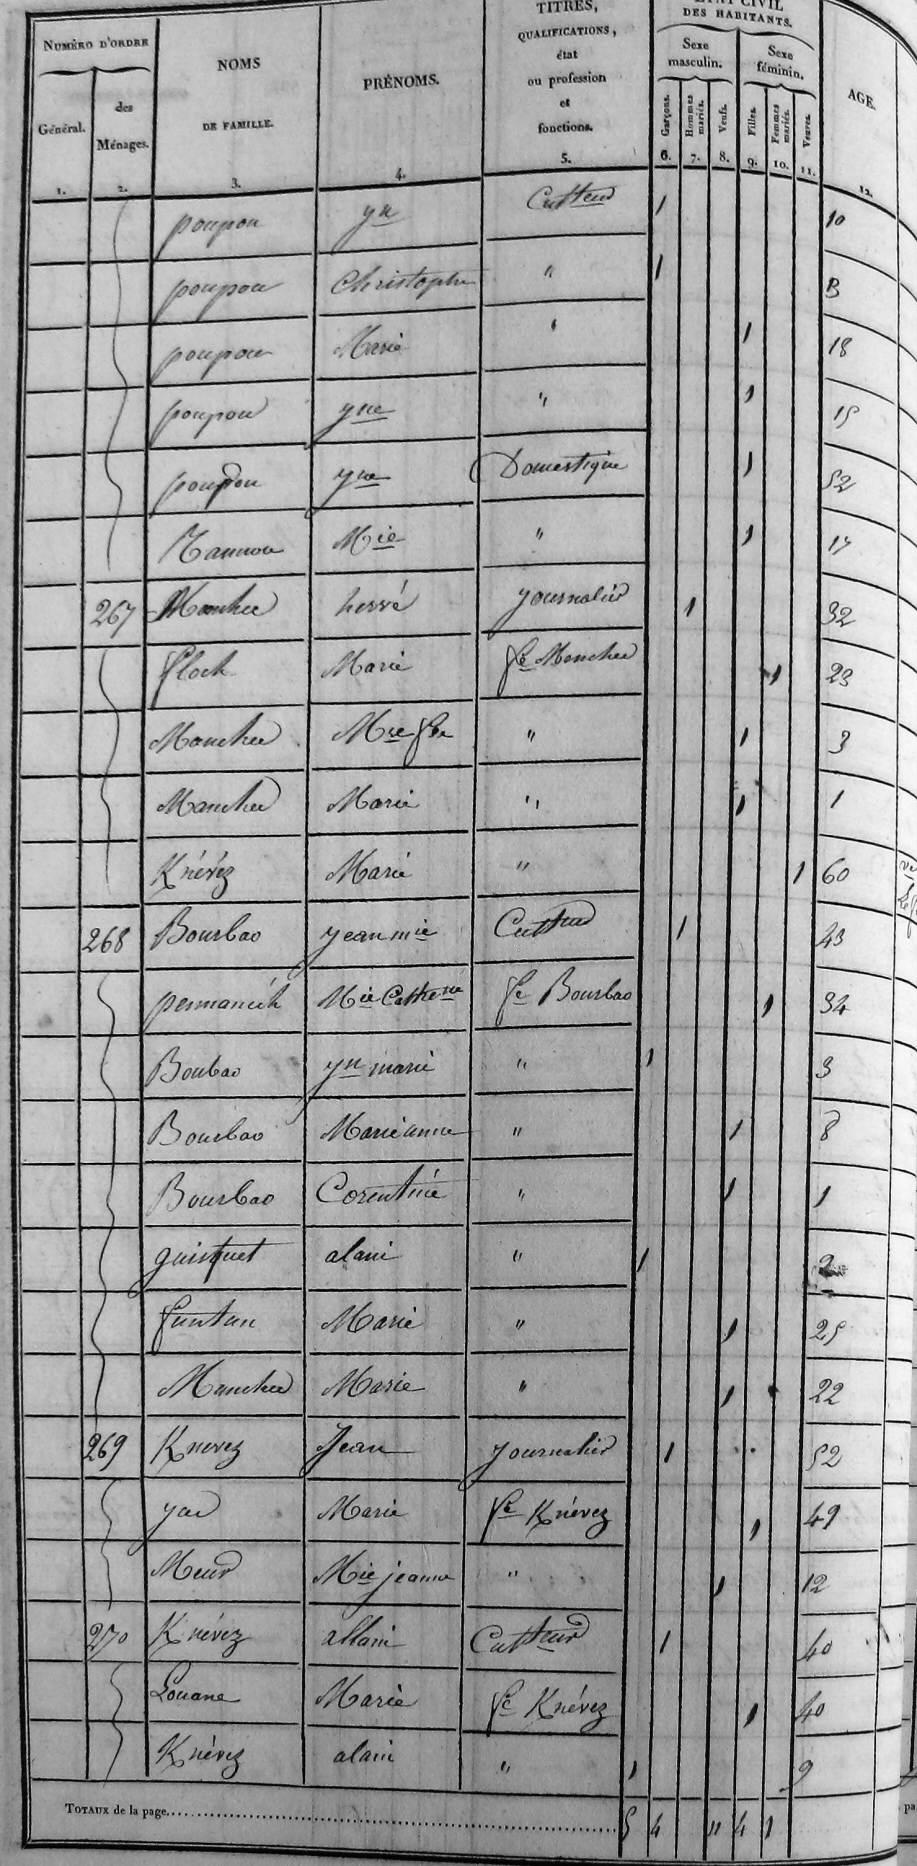 NUMÉRO D'ORDRE
NOMS
DE FAMILLE.
PRÉNOMS.
TITRES,
QUALIFICATIONS,
état
ou profession
et
fonctions.
ÉTAT CIVIL
DES HABITANTS.
Sexe
masculin.
Sexe
féminin.
AGE.
Général.
des
Ménages.
Garçons.
Hommes
mariés.
Veufs.
Filles.
Femmes
mariées.
Veuves.
1. 2. 3. 4. 5. 6. 7. 8. 9. 10. 11. 12.
poupon yn Cultteur 1 10
poupon Christophe " 1
poupon Marie " 1 18
poupon yne " 1 15
poupon yne Domestique 1 52
Tannou Mie " 1 17
267 Manchec hervé journalier 1 32
floch Marie fe Monchec 1 23
Monchec Mie fse " 1 3
Manchec Marie " 1 1
Knévéz Marie " 1 60
268 Bourbao yean mie Cultteur 1 43
permanech Mie Cathene fe Bourbao 1 34
Boubao yn marie " 1 3
Bourbao Marieanne " 1 8
Bourbao Corentine " 1 1
guisquet alain " 1 2
funtun Marie " 1 25
Manchec Marie " 1 22
269 Knevez Jean journalier 1 52
Marie fe Knévez 1 49
Meur Mie jeanne " 1 12
270 Knévéz allain Cultteur 1 40
Louane Marie fe Knévez 1 40
Knévéz alain " 1 9
TOTAUX de la page 5 4 11 4 1